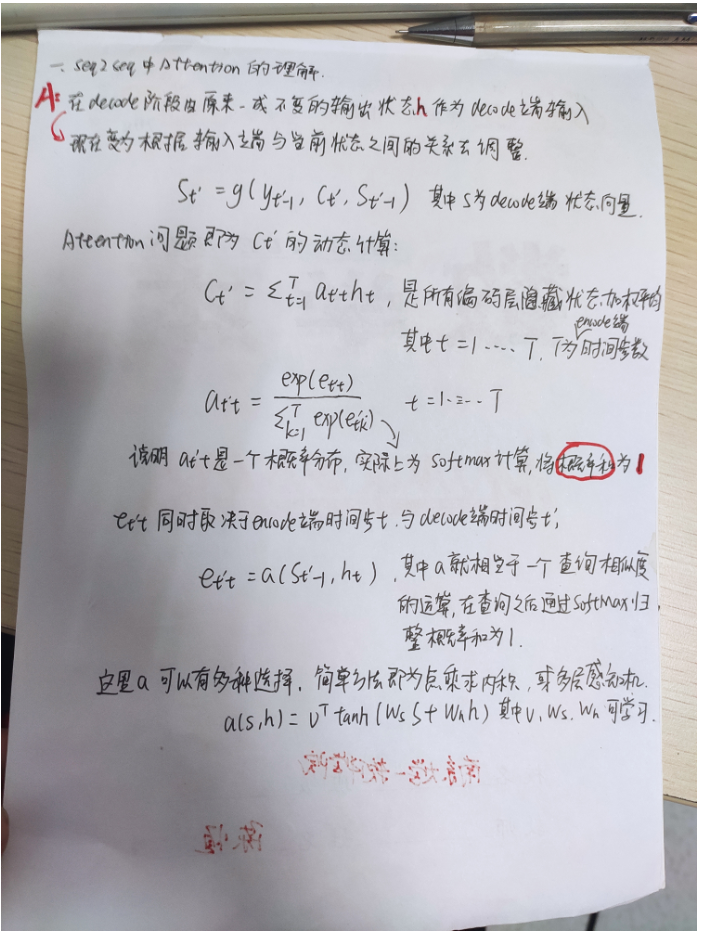 一. seq2seq中Attention的理解.
A: 在decode阶段由原来一成不变的输出状态h作为decode端输入
现在变为根据输入端与当前状态之间的关系去调整.
St' = g(yt'-1, Ct', St'-1) 其中S为decode端状态向量.
Attention问题即为Ct'的动态计算:
Ct' = Σ_{t=1}^{T} at't ht, 是所有编码层隐藏状态加权平均
encode端
其中t=1····T, T为时间步数
at't = exp(et't) / Σ_{k=1}^{T} exp(et'k) t=1····T
说明at't是一个概率分布, 实际上为softmax计算, 将概率和为1
et't同时取决于encode端时间步t, 与decode端时间步t';
et't = a(St'-1, ht), 其中a就相当于一个查询相似度
的运算, 在查询之后通过SoftMax归
整概率和为1.
这里a可以有多种选择, 简单方法即为点乘求内积, 或多层感知机.
a(s,h) = v^T tanh(Ws S + Wh h) 其中v, Ws, Wh可学习.